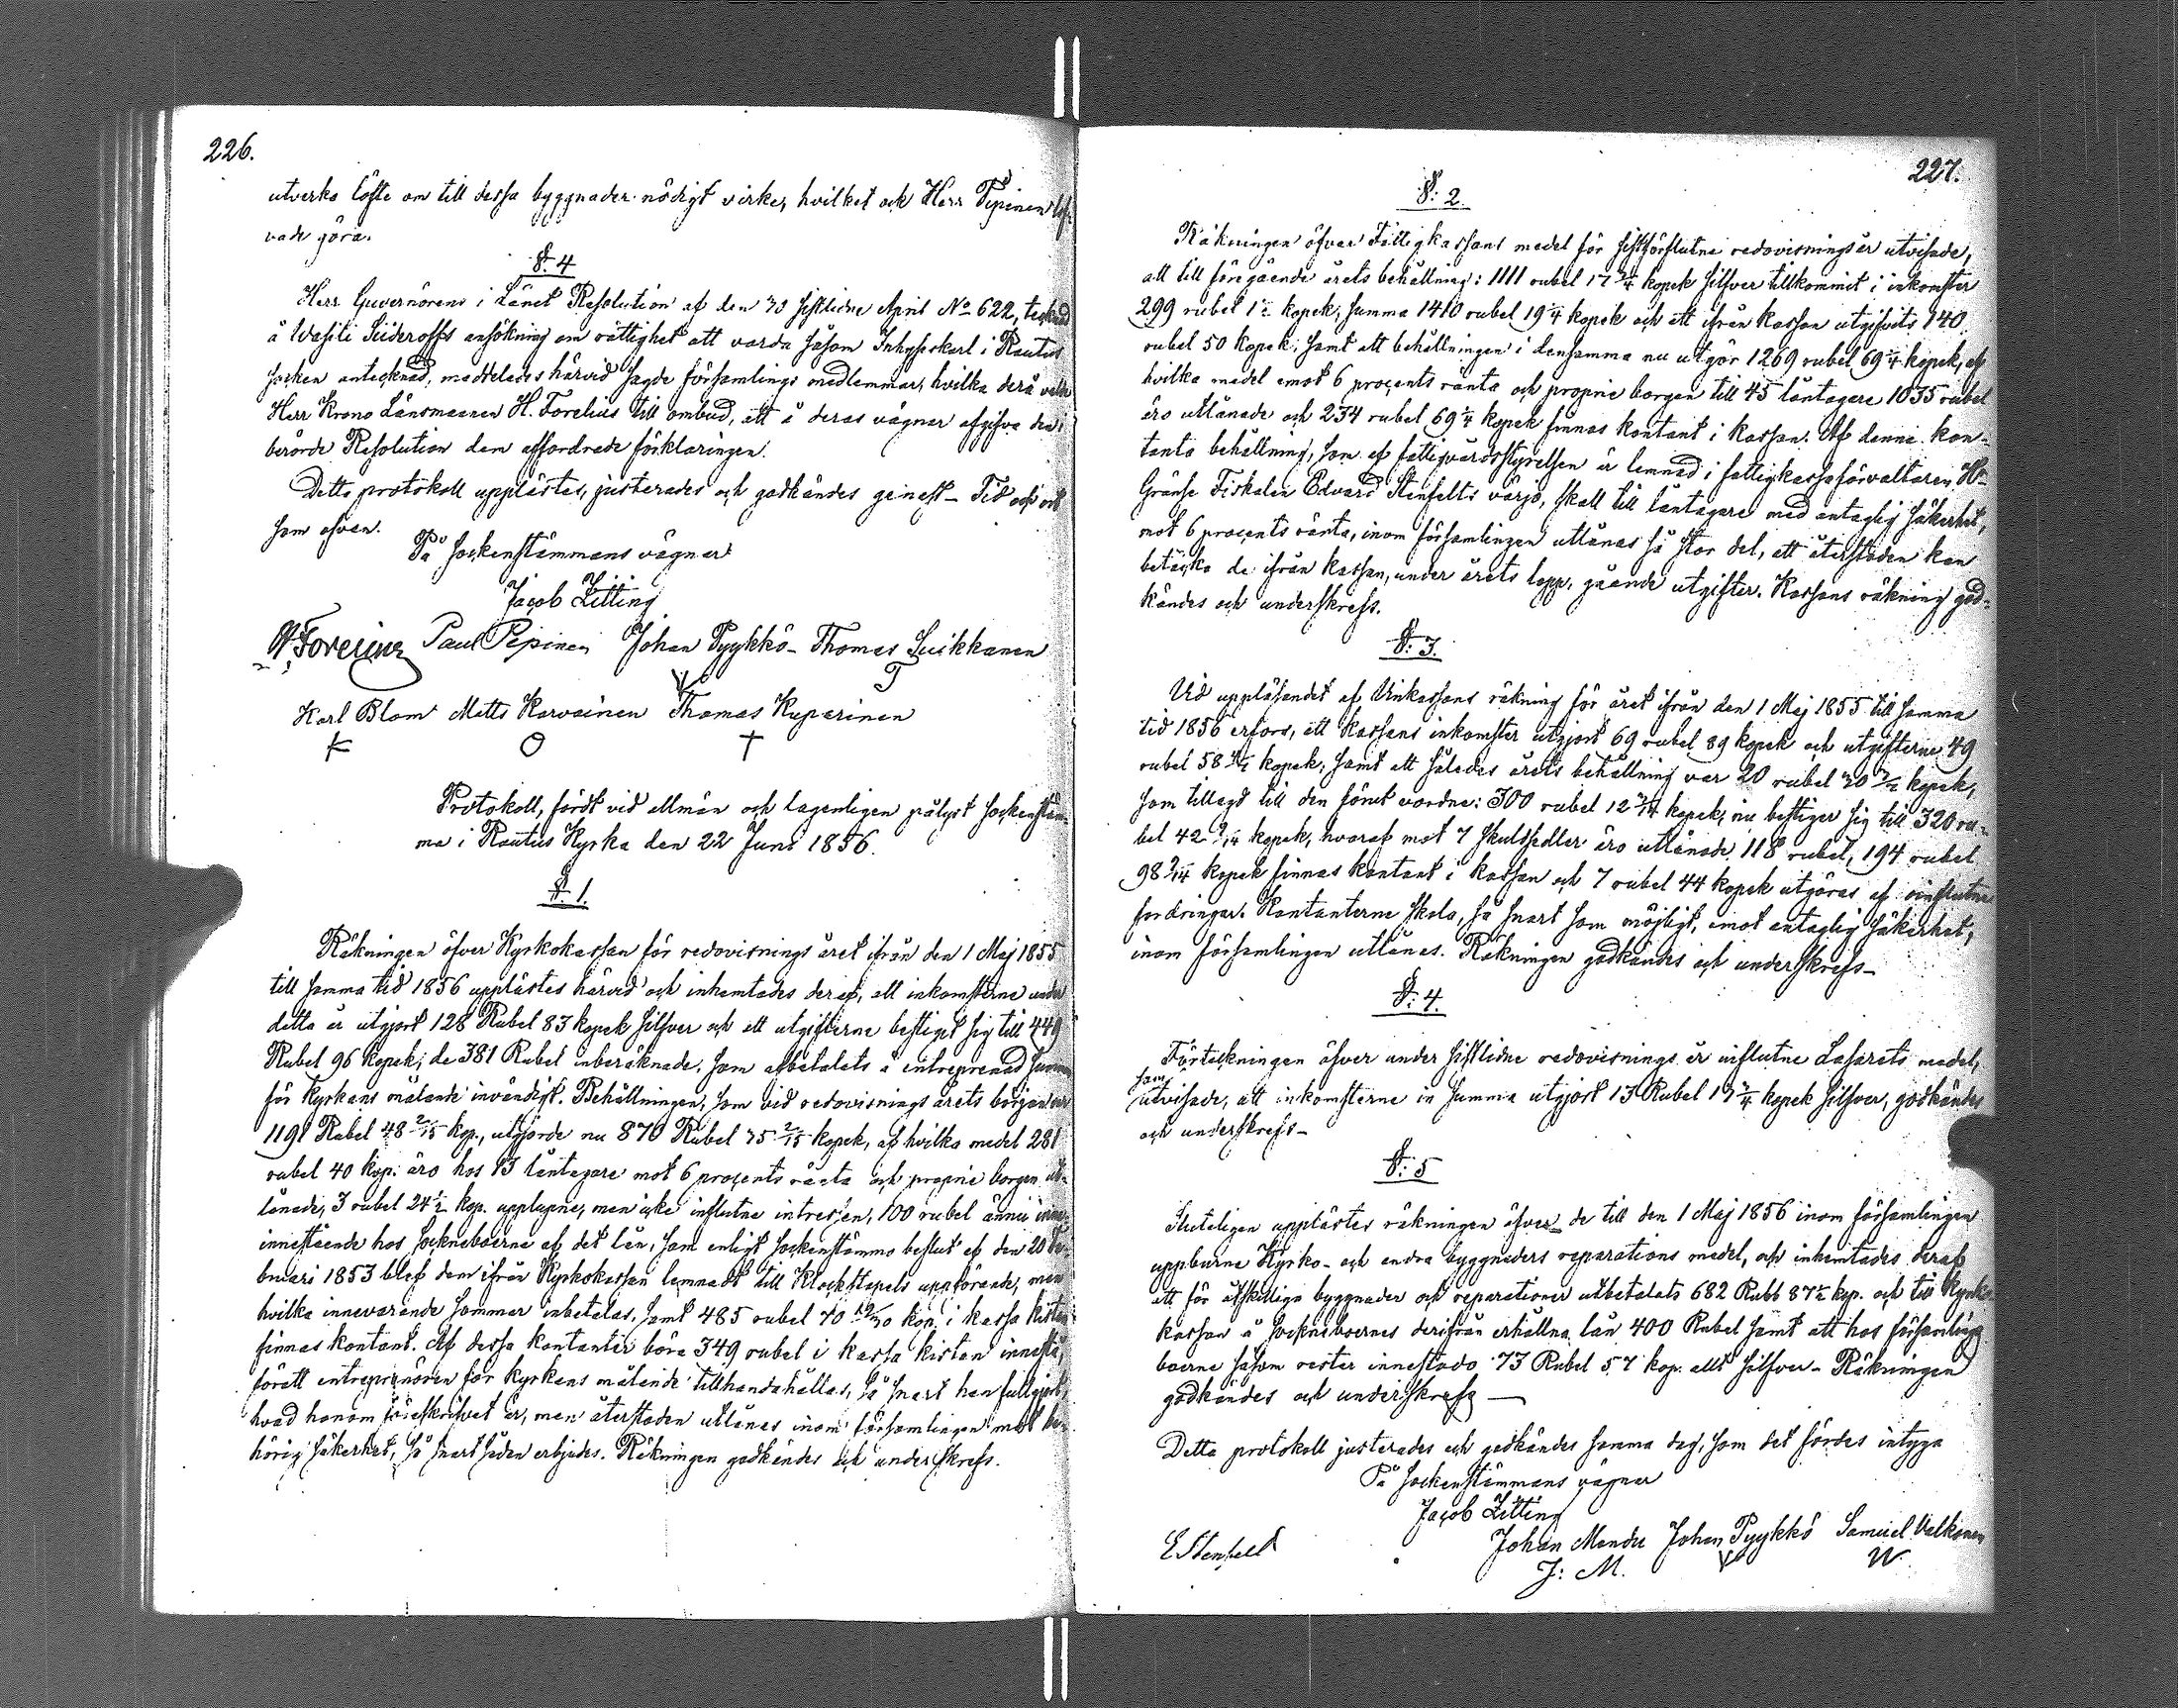 226.
utverka löfte om till dessa byggnader nödigt virke, hvilket ock Herr Pipinen lof-
vade göra.
§. 4
Herr Guvernörens i Länet Resolution af den 30 sistlidne April No 622, tecknad
å Wasili Siideroffs ansökning om rättighet att varda såsom Inhyseskarl i Rautus
socken antecknad, meddelades härvid sagde församlings medlemmar, hvilka derå valde
Herr Krono Länsmannen H. Forelius till ombud, att å deras vägnar afgifva den i
berörde Resolution dem affordrade förklaringen.
Detta protokoll upplästes, justerades och godkändes genast_ Tid och ort
som ofvan.
På Sockenstämmans vägnar
Jacob Zitting
H. Forelius Paul Pipinen Johan Pyykkö_ Thomas Luikkanen
Karl Blom Matts Karvainen Thomas Kuparinen
Protokoll, fördt vid allmän och lagenligen pålyst sockenstäm-
ma i Rautus Kyrka den 22 Juni 1856.
§. 1.
Räkningen öfver Kyrkokassan för redovisnings året ifrån den 1 Maj 1855
till samma tid 1856 upplästes härvid och inhemtades deraf, att inkomsterne under
detta år utgjort 128 Rubel 83 kopek silfver och att utgifterne bestiget sig till 449
Rubel 96 kopek, de 381 Rubel inberäknade, som afbetalats å entreprenad summan
för Kyrkans målande invändigt. Behållningen, som vid redovisnings årets början var
1191 Rubel 48 2/15 kop., utgjorde nu 870 Rubel 35 2/15 kopek, af hvilka medel 281
rubel 40 kop. äro hos 13 låntagare mot 6 procents ränta och proprie borgen ut-
lånade, 3 rubel 24 1/2 kop. upplupne, men icke influtne intressen, 100 rubel ännu
innestående hos Sockneboerne af det lån, som enligt sockenstämmo beslut af den 20 Fe-
bruari 1853 blef dem ifrån Kyrkokassan lemnadt till Klockstapels uppförande, men
hvilka innevarande sommar inbetalas, samt 485 rubel 70 19/30 kop. i kassa kistan
finnas kontant. Af dessa kontanter böra 349 rubel i kassa kistan innestå,
föratt entreprenören för kyrkans målande tillhandahållas, så snart han fullgjort,
hvad honom föreskrifvet är, men återstoden utlånas inom församlingen mot be-
hörig säkerhet, så snart sådan erbjudes. Räkningen godkändes och underskrefs.
227.
§. 2.
Räkningen öfver Fattigkassans medel för sistförflutne redovisningsår utvisade,
att till föregående årets behållning: 1111 rubel 17 3/4 kopek silfver tillkommit i inkomster
299 rubel 1 1/2 kopek, summa 1410 rubel 19 1/4 kopek och att ifrån kassan utgifvits 140
rubel 50 kopek, samt att behållningen i densamma nu utgör 1269 rubel 69 1/4 kopek, af
hvilka medel emot 6 procents ränta och proprie borgen till 45 låntagare 1035 rubel
äro utlånade och 234 rubel 69 1/4 kopek finnas kontant i kassan. Af denne kon-
tanta behållning, som af fattigvårdsstyrelsen är lemnad i fattigkassaförvaltaren H_
Gränse Fiskalen Edvard Stenfelts värjo, skall till låntagare med antaglig säkerhet,
mot 6 procents ränta, inom församlingen utlånas så stor del, att återstoden kan
betäcka de ifrån kassan, under årets lopp, gående utgifter. Kassans räkning god-
kändes och underskrefs.
§. 3.
Vid uppläsandet af Vinkassans räkning för året ifrån den 1 Maj 1855 till samma
tid 1856 erfors, att kassans inkomster utgjort 69 rubel 89 kopek och utgifterne 49
rubel 58 1/2 kopek, samt att således årets behållning var 20 rubel 30 1/2 kopek,
som tillagd till den förut vordne: 300 rubel 12 kopek, nu bestiger sig till 320 ru-
bel 42 kopek, hvaraf mot 7 skuldsedlar äro utlånade 118 rubel, 194 rubel
98 kopek finnas kontant i kassan och 7 rubel 44 kopek utgöras af oinflutne
fordringar. Kontanterne skola, så snart som möjligt, emot antaglig säkerhet,
inom församlingen utlånas. Räkningen godkändes och underskrefs_
§. 4.
Förteckningen öfver under sistlidne redovisnings år influtne Lasarets medel,
som
utvisade, att inkomsterne in summa utgjort 13 Rubel 13 3/4 kopek silfver, godkändes
och underskrefs_
§. 5
Sluteligen upplästes räkningen öfver de till den 1 Maj 1856 inom församlingen
uppburne Kyrko- och andra byggnaders reparations medel, och inhemtades deraf
att för åtskilliga byggnader och reparationer utbetalats 682 Rubl 87 1/2 kop. och till Kyrko
kassan å sockneboernes derifrån erhållna lån 400 Rubel samt att hos församlings
boerne såsom rester innestodo 73 Rubel 57 kop. allt silfver_ Räkningen
godkändes och underskrefs_
Detta protokoll justerades och godkändes samma dag, som det fördes intyga
På Sockenstämmans vägnar
Jacob Zitting
E Stenfelt Johan Mandu Johan Pyykkö Samuel Valkonen
J: M.